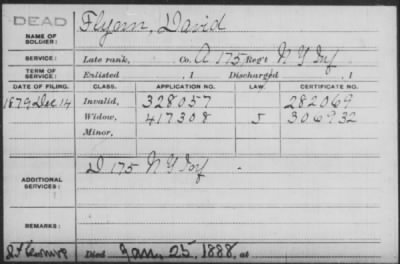 DEAD
NAME OF SOLDIER: Flyom, David
SERVICE: Late rank, Co. A 175 Reg't N Y Inf
TERM OF SERVICE: Enlisted , 1 Discharged , 1
DATE OF FILING. CLASS. APPLICATION NO. LAW. CERTIFICATE NO.
1879 Dec 14 Invalid, 328057 282069
Widow, 417308 J 306932
Minor,
ADDITIONAL SERVICES: D 175 N Y Inf -
REMARKS:
Died Jan. 25, 1888, at